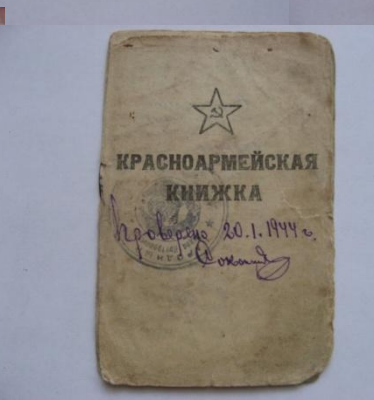 КРАСНОАРМЕЙСКАЯ
КНИЖКА
Проверено 20.1.1944 г.